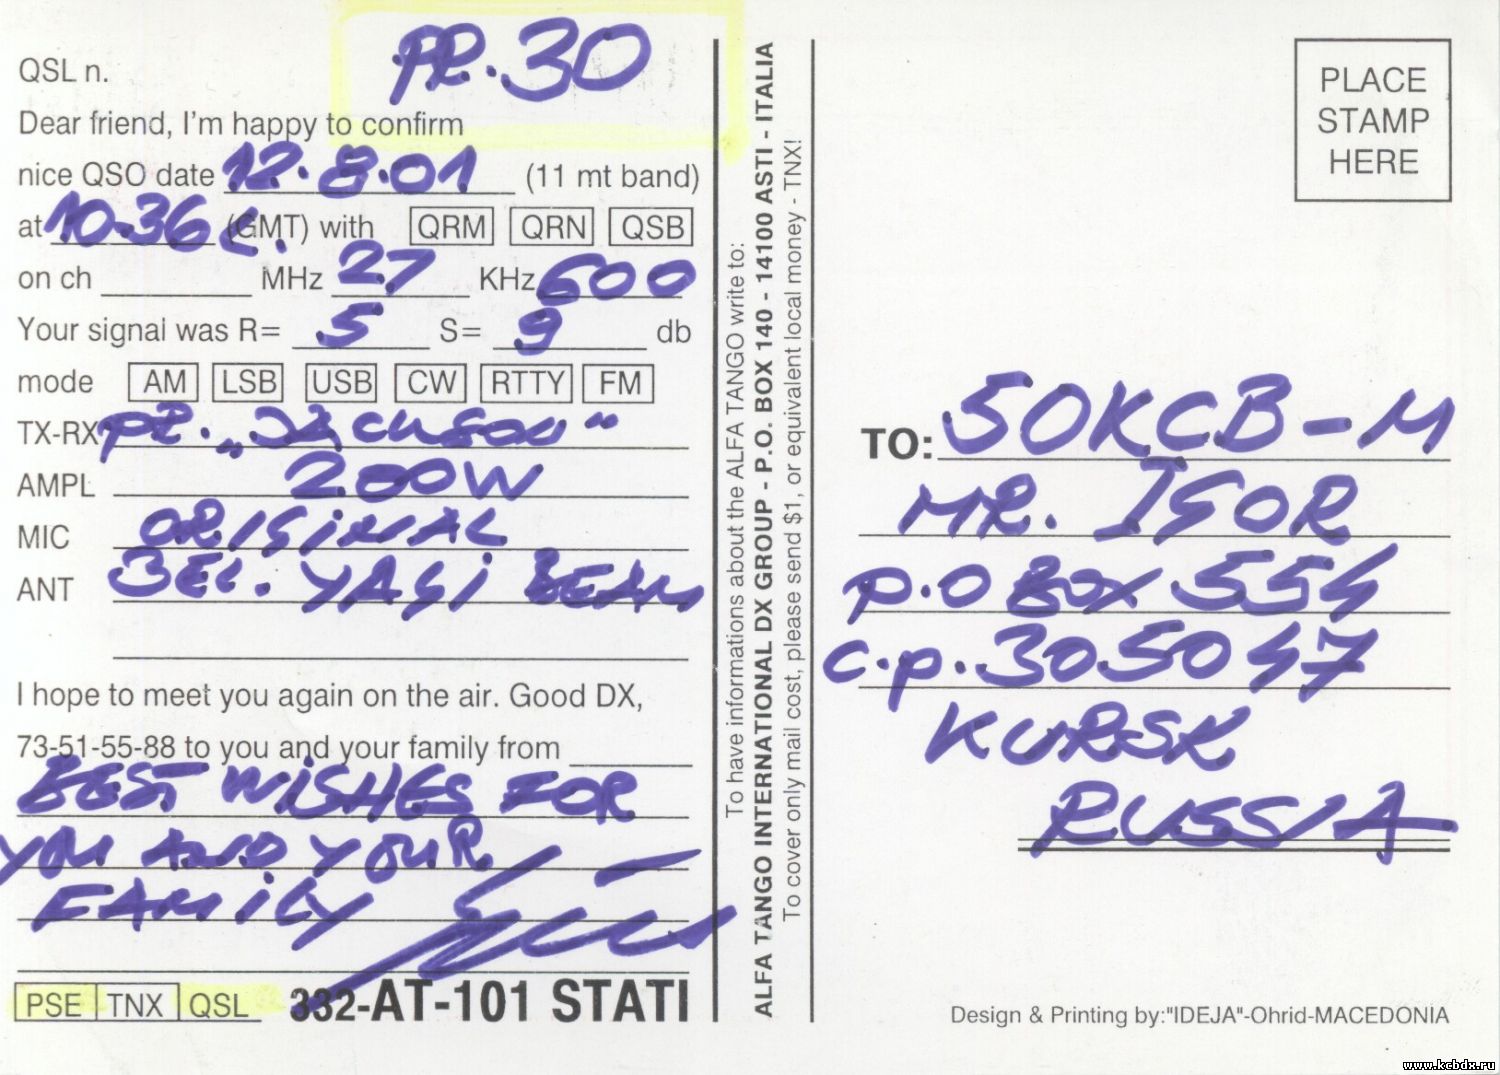 QSL n. PR.30
Dear friend, I'm happy to confirm
nice QSO date 12.8.01 (11 mt band)
at 10.36 L. (GMT) with QRM QRN QSB
on ch MHz 27 KHz 600
Your signal was R= 5 S= 9 db
mode AM LSB USB CW RTTY FM
TX-RX PR. „Jackson"
AMPL 200W
MIC ORIGINAL
ANT 3EL. YAGI BEAM
I hope to meet you again on the air. Good DX,
73-51-55-88 to you and your family from
BEST WISHES FOR
YOU AND YOUR
FAMILY
PSE TNX QSL 332-AT-101 STATI
To have informations about the ALFA TANGO write to:
ALFA TANGO INTERNATIONAL DX GROUP - P.O. BOX 140 - 14100 ASTI - ITALIA
To cover only mail cost, please send $1, or equivalent local money - TNX!
PLACE
STAMP
HERE
TO: 50KCB-M
MR. IGOR
P.O BOX 554
C.P. 305047
KURSK
RUSSIA
Design & Printing by:"IDEJA"-Ohrid-MACEDONIA
www.kcbdx.ru